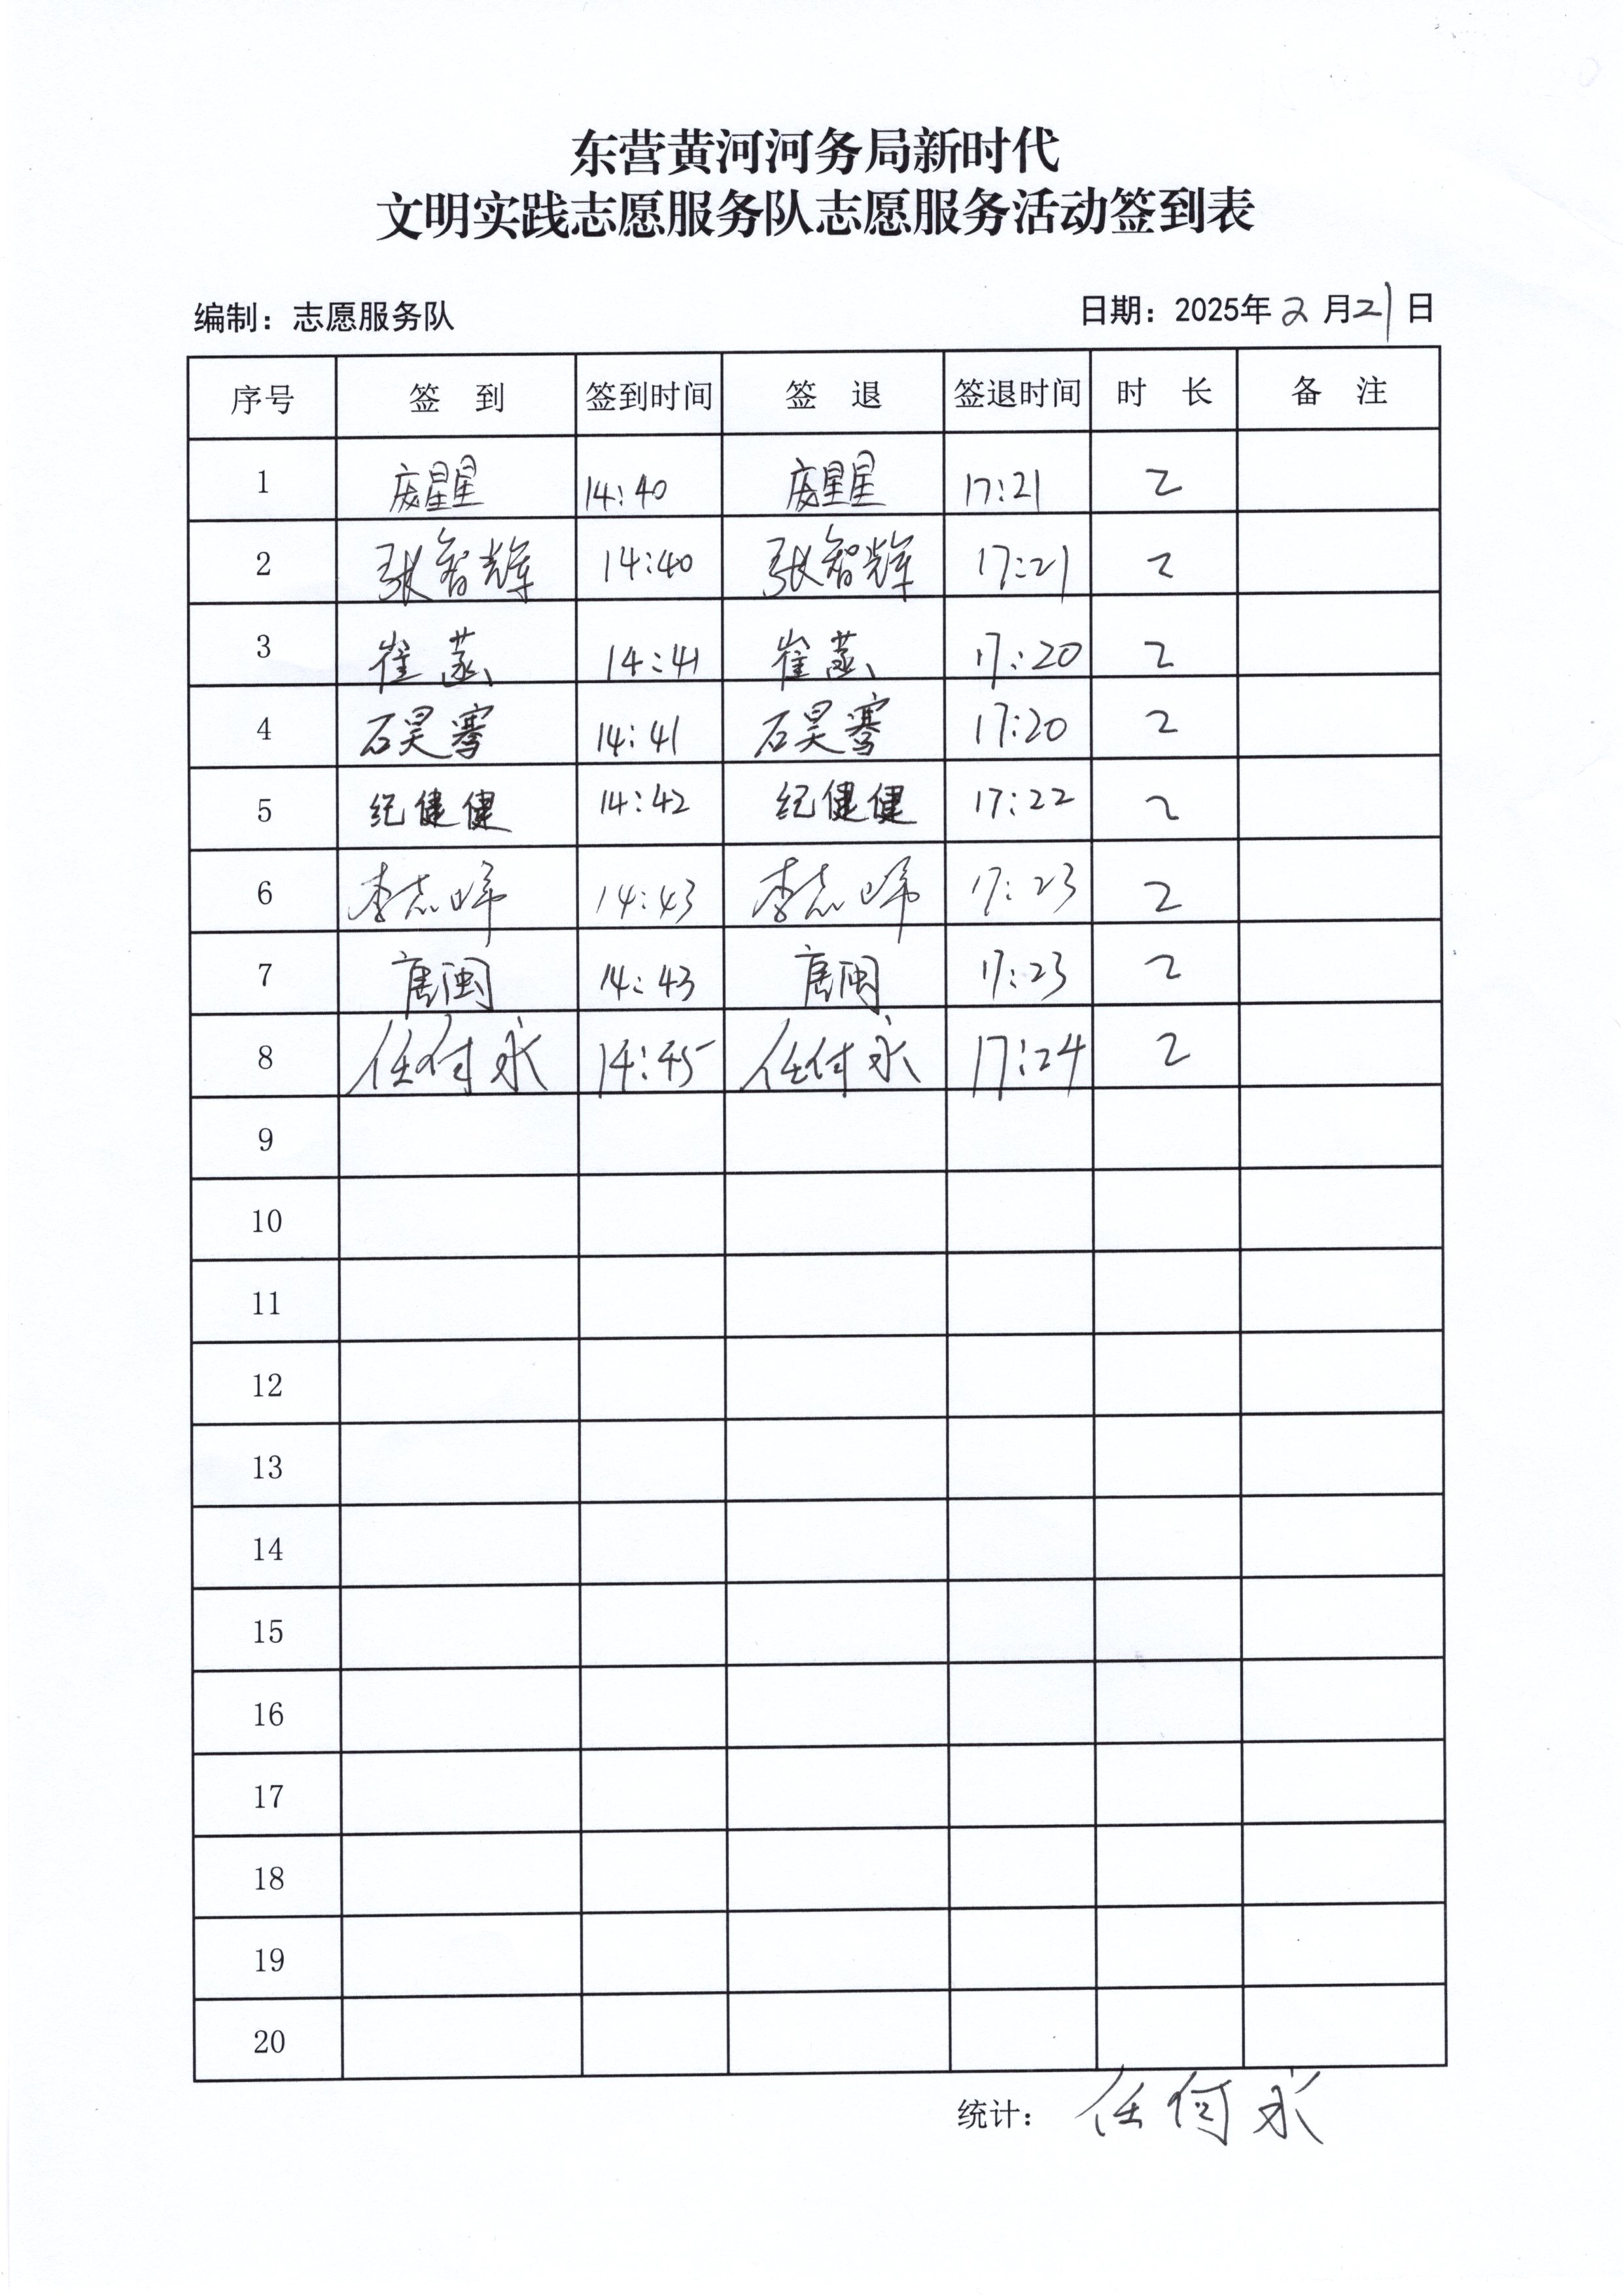 东营黄河河务局新时代
文明实践志愿服务队志愿服务活动签到表
编制：志愿服务队 日期：2025年2月21日
序号 签 到 签到时间 签 退 签退时间 时 长 备 注
1 庞星星 14:40 庞星星 17:21 2
2 张智辉 14:40 张智辉 17:21 2
3 崔 14:41 崔 17:20 2
4 石昊骞 14:41 石昊骞 17:20 2
5 纪健健 14:42 纪健健 17:22 2
6 李志 14:43 李志 17:23 2
7 唐闽 14:43 唐闽 17:23 2
8 任何永 14:45 任何永 17:24 2
9
10
11
12
13
14
15
16
17
18
19
20
统计：任何永